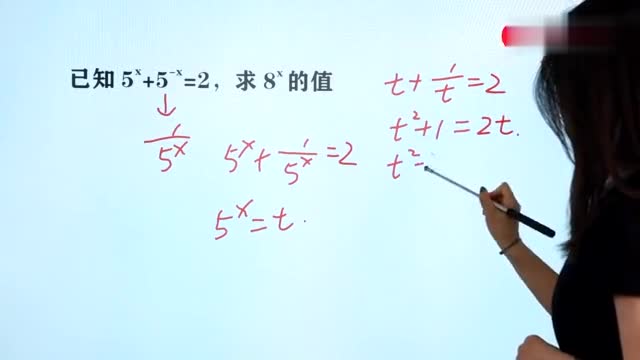 已知 5ˣ+5⁻ˣ=2，求 8ˣ 的值
↓
1/5ˣ
5ˣ+1/5ˣ=2
5ˣ=t.
t+1/t=2
t²+1=2t.
t²-